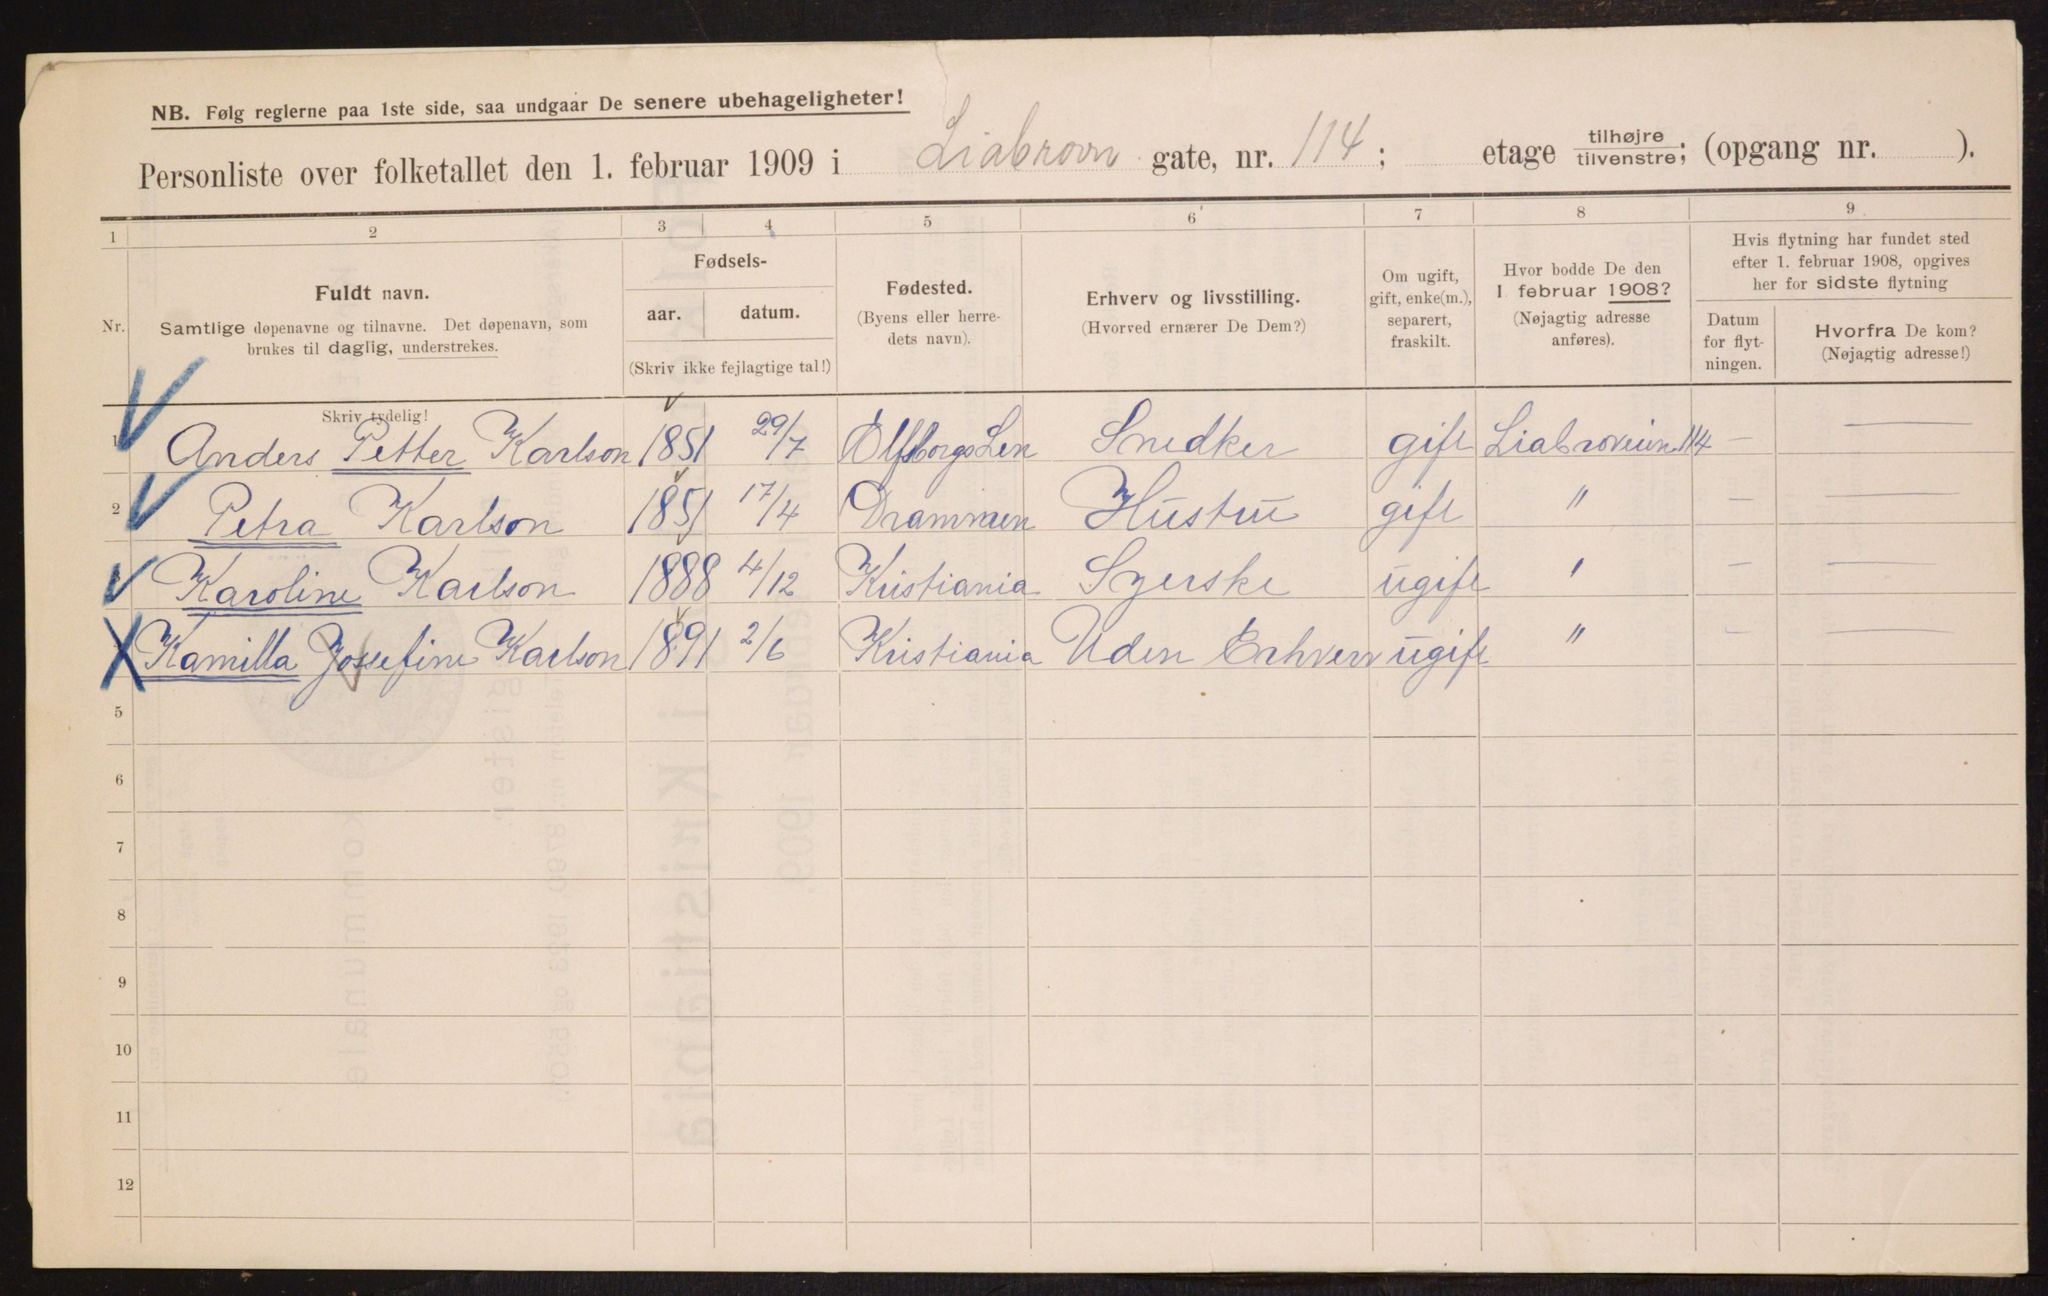 NB. Følg reglerne paa 1ste side, saa undgaar De senere ubehageligheter!
Personliste over folketallet den 1. februar 1909 i Liabrovn gate, nr. 114; etage tilhøjre tilvenstre; (opgang nr. ).
1 2 3 4 5 6 7 8 9
Nr.
Fuldt navn.
Samtlige døpenavne og tilnavne. Det døpenavn, som
brukes til daglig, understrekes.
Skriv tydelig!
Fødsels-
aar. datum.
(Skriv ikke fejlagtige tal!)
Fødested.
(Byens eller herre-
dets navn).
Erhverv og livsstilling.
(Hvorved ernærer De Dem?)
Om ugift,
gift, enke(m.),
separert,
fraskilt.
Hvor bodde De den
1. februar 1908?
(Nøjagtig adresse
anføres).
Hvis flytning har fundet sted
efter 1. februar 1908, opgives
her for sidste flytning
Datum
for flyt-
ningen.
Hvorfra De kom?
(Nøjagtig adresse!)
1 Anders Petter Karlson 1851 29/7 Elfsborgs Len Snedker gift Liabroveien 114 — —
2 Petra Karlson 1851 17/4 Drammen Hustru gift " — —
Karoline Karlson 1888 4/12 Kristiania Syerske ugift " — —
Kamilla Jossefine Karlson 1891 2/6 Kristiania Uden Erhverv ugift " — —
5
6
7
8
9
10
11
12